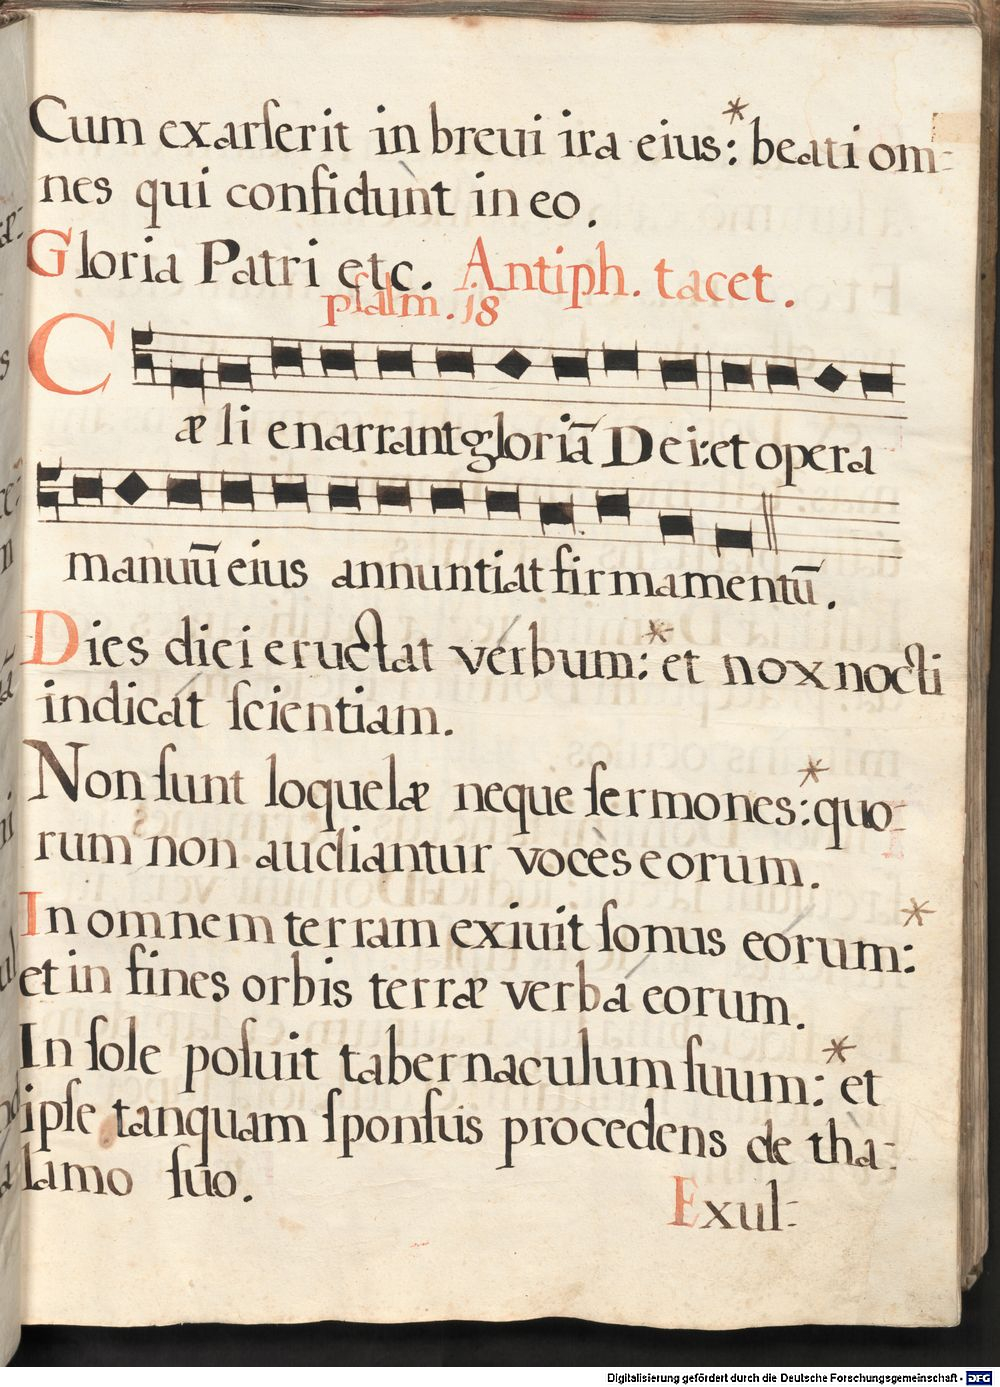 Cum exarſerit in breui ira eius:* beati om-
nes qui confidunt in eo.
Gloria Patri etc. Antiph. tacet.
pſalm. i8
C
æli enarrant gloriā Dei: et opera
manuū eius annuntiat firmamentū.
Dies diei eructat vérbum:* et nox nocti
indicát ſcientiam.
Non ſunt loquelæ neque ſermones:* quo-
rum non audiantur vocès eorum.
In omnem terram exiuit ſonus eorum:*
et in fines orbis terræ verba eorum.
In ſole poſuit tabernaculum ſuum:* et
ipſe tanquam ſponſus procedens de tha-
lamo ſuo.
Exul-
Digitalisierung gefördert durch die Deutsche Forschungsgemeinschaft - DFG